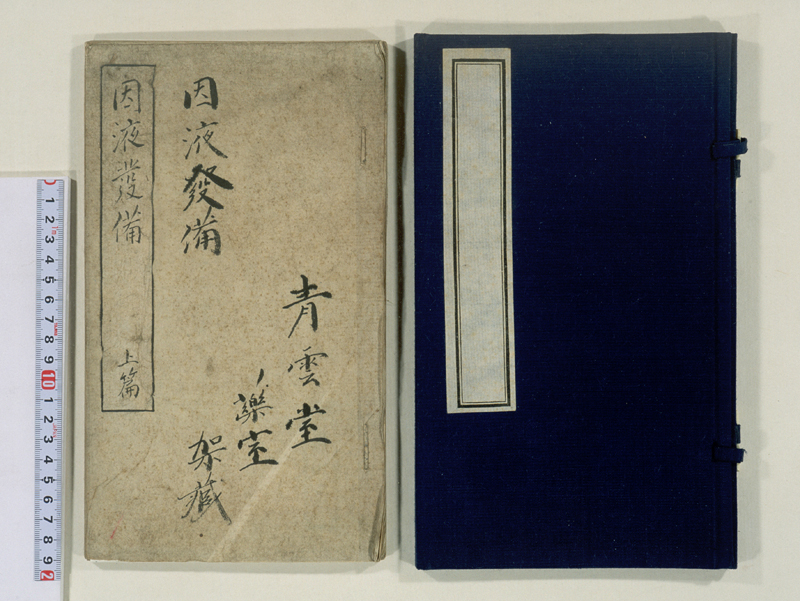 青雲堂
ノ藥室
架藏
因液發備
因液發備 上篇
1 2 3 4 5 6 7 8 9 10 1 2 3 4 5 6 7 8 9 2